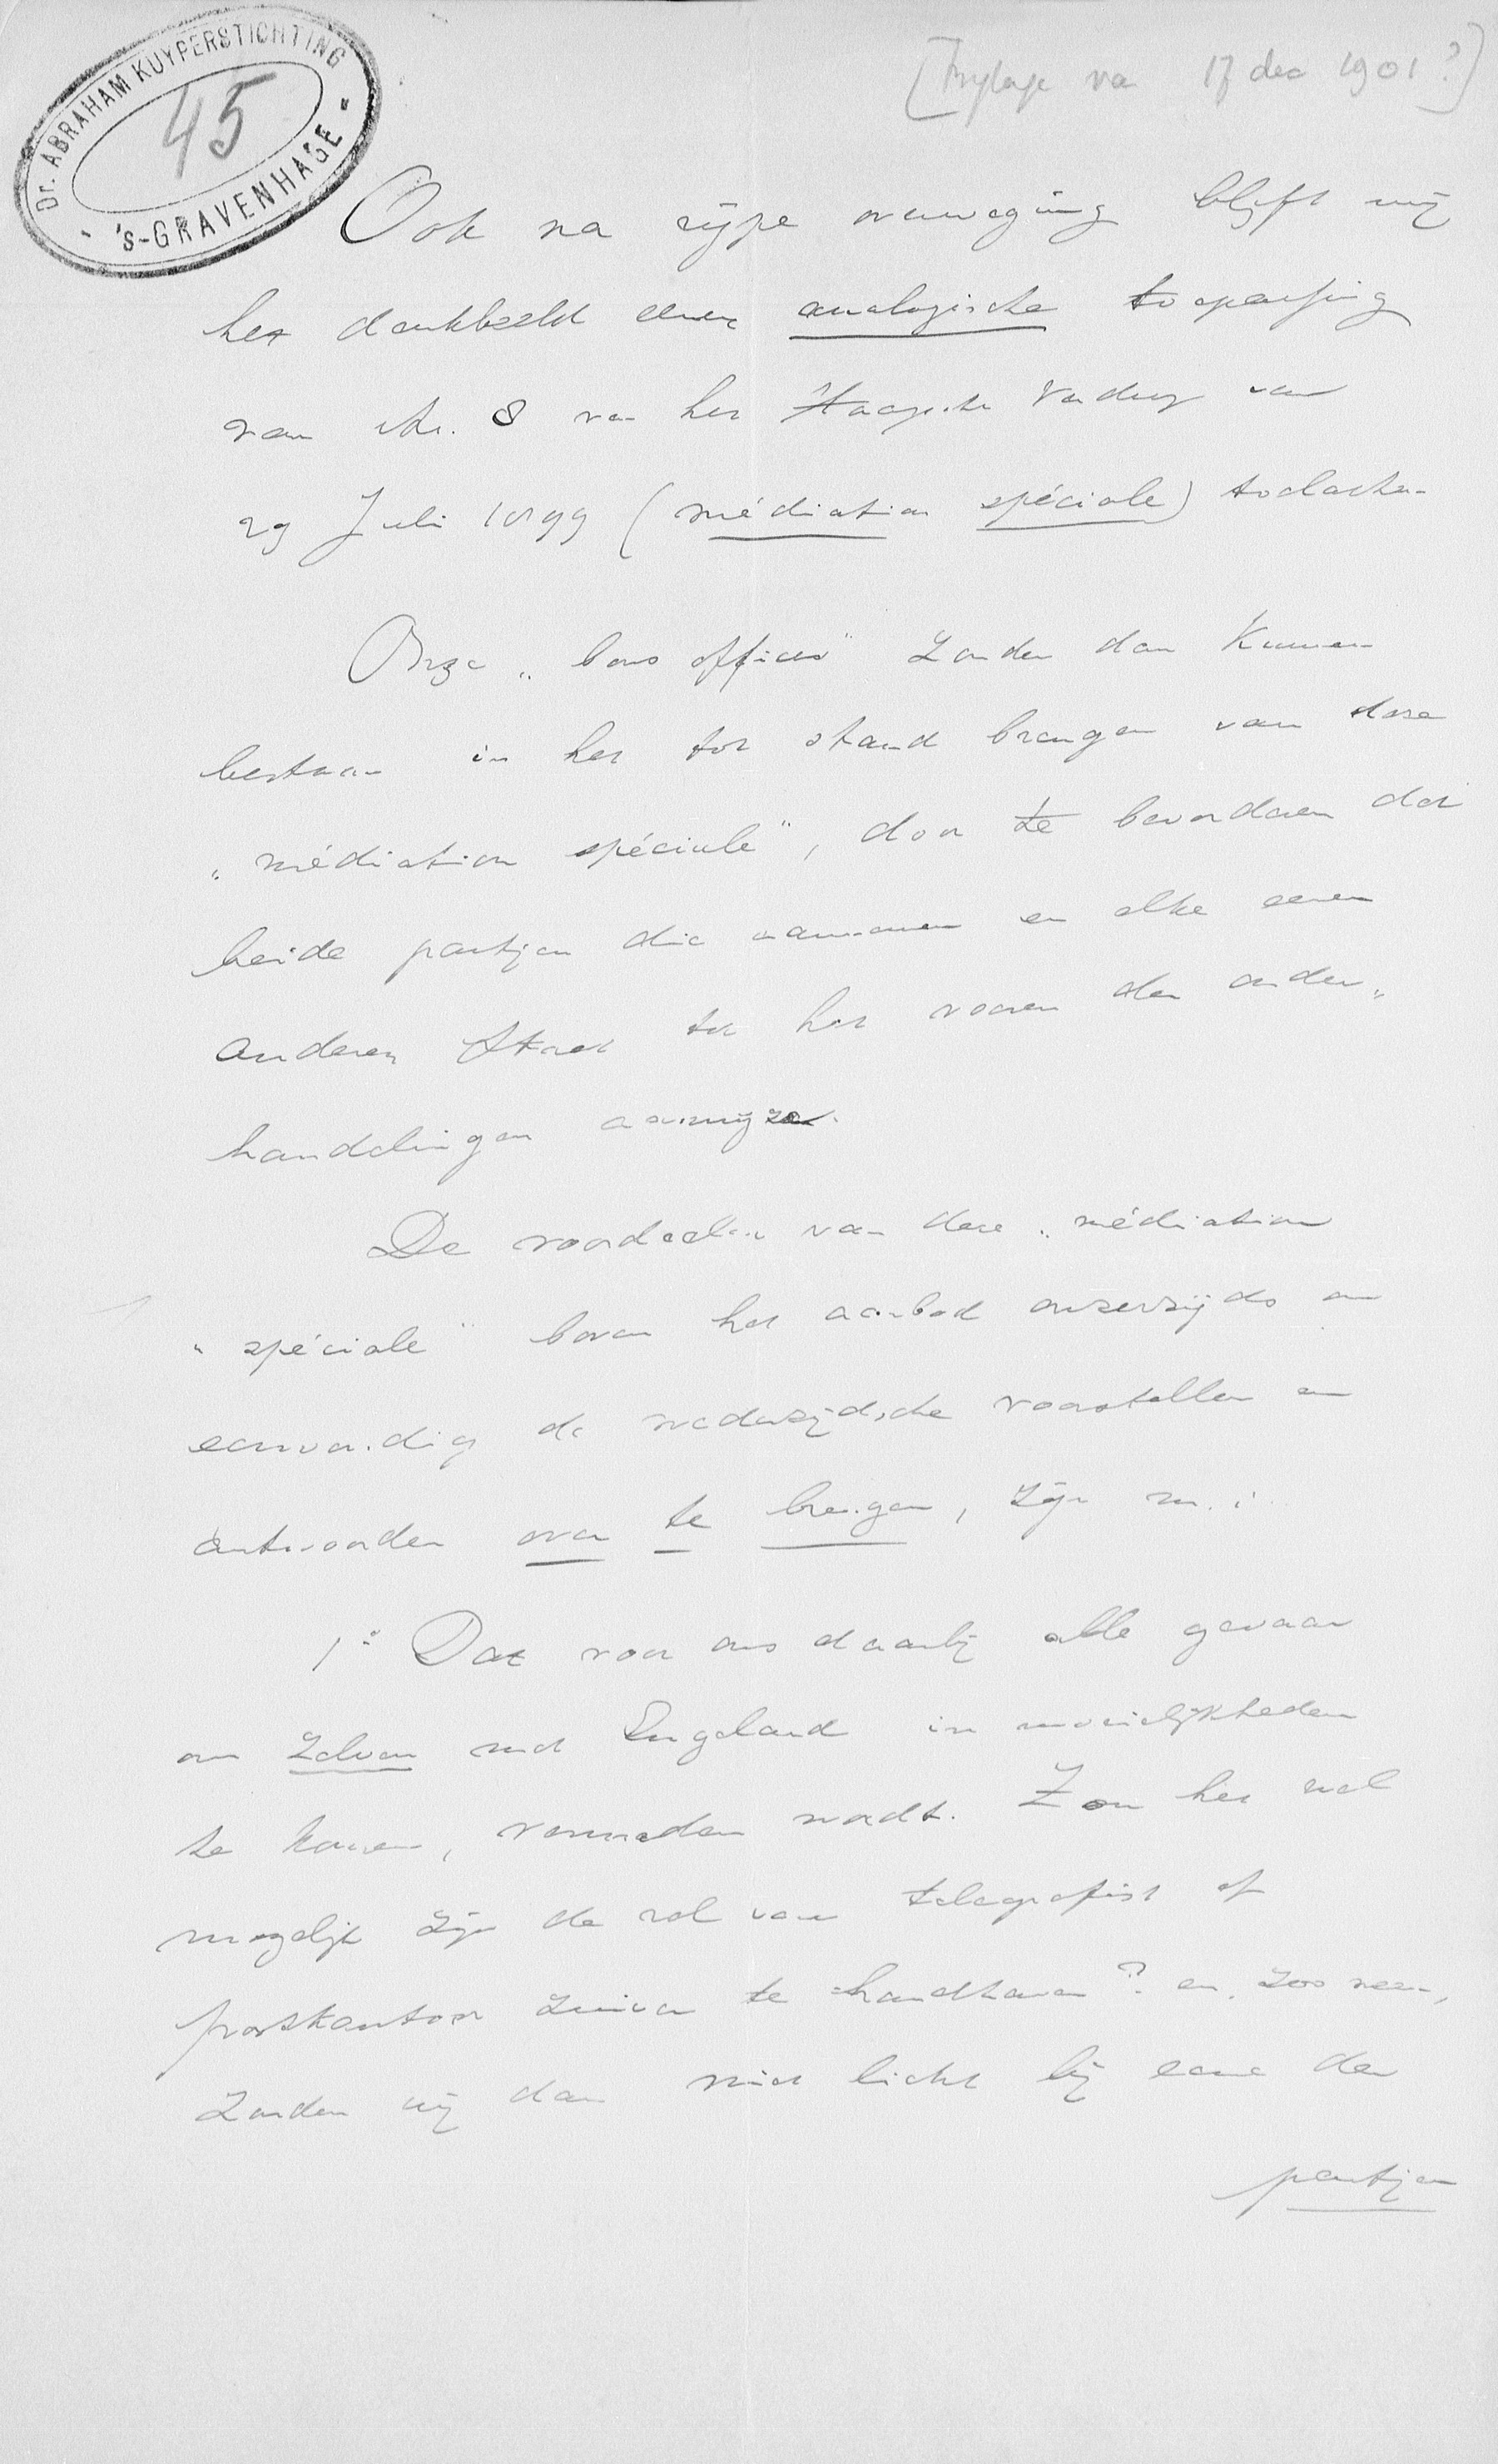 Dr. ABRAHAM KUYPERSTICHTING
45
- 's-GRAVENHAGE -
[Bijlage va 17 dec 1901?]
Ook na rijpe overweging blijft mij
het denkbeeld eener analogische toepassing
van Art. 8 van het Haagsche Verdrag van
29 Juli 1899 (médiation spéciale) toelachen
Onze „bons offices" zouden dan kunnen
bestaan in het tot stand brengen van deze
„médiation spéciale", door te bevorderen dat
beide partijen die aannamen en elke eenen
anderen Staat tot het voeren der onder„
handelingen aanwijze.
De voordeelen van deze „médiation
„spéciale" boven het aanbod onzerzijds om
eenvoudig de wederzijdsche voorstellen en
antwoorden over te brengen, zijn m.i.
1° Dat voor ons daarbij alle gevaar
om zelven met Engeland in moeielijkheden
te komen, vermeden wordt. Zou het wel
mogelijk zijn de rol van telegrafist of
postkantoor zuiver te handhaven? en, zoo neen,
zouden wij dan niet licht bij eene der
partijen